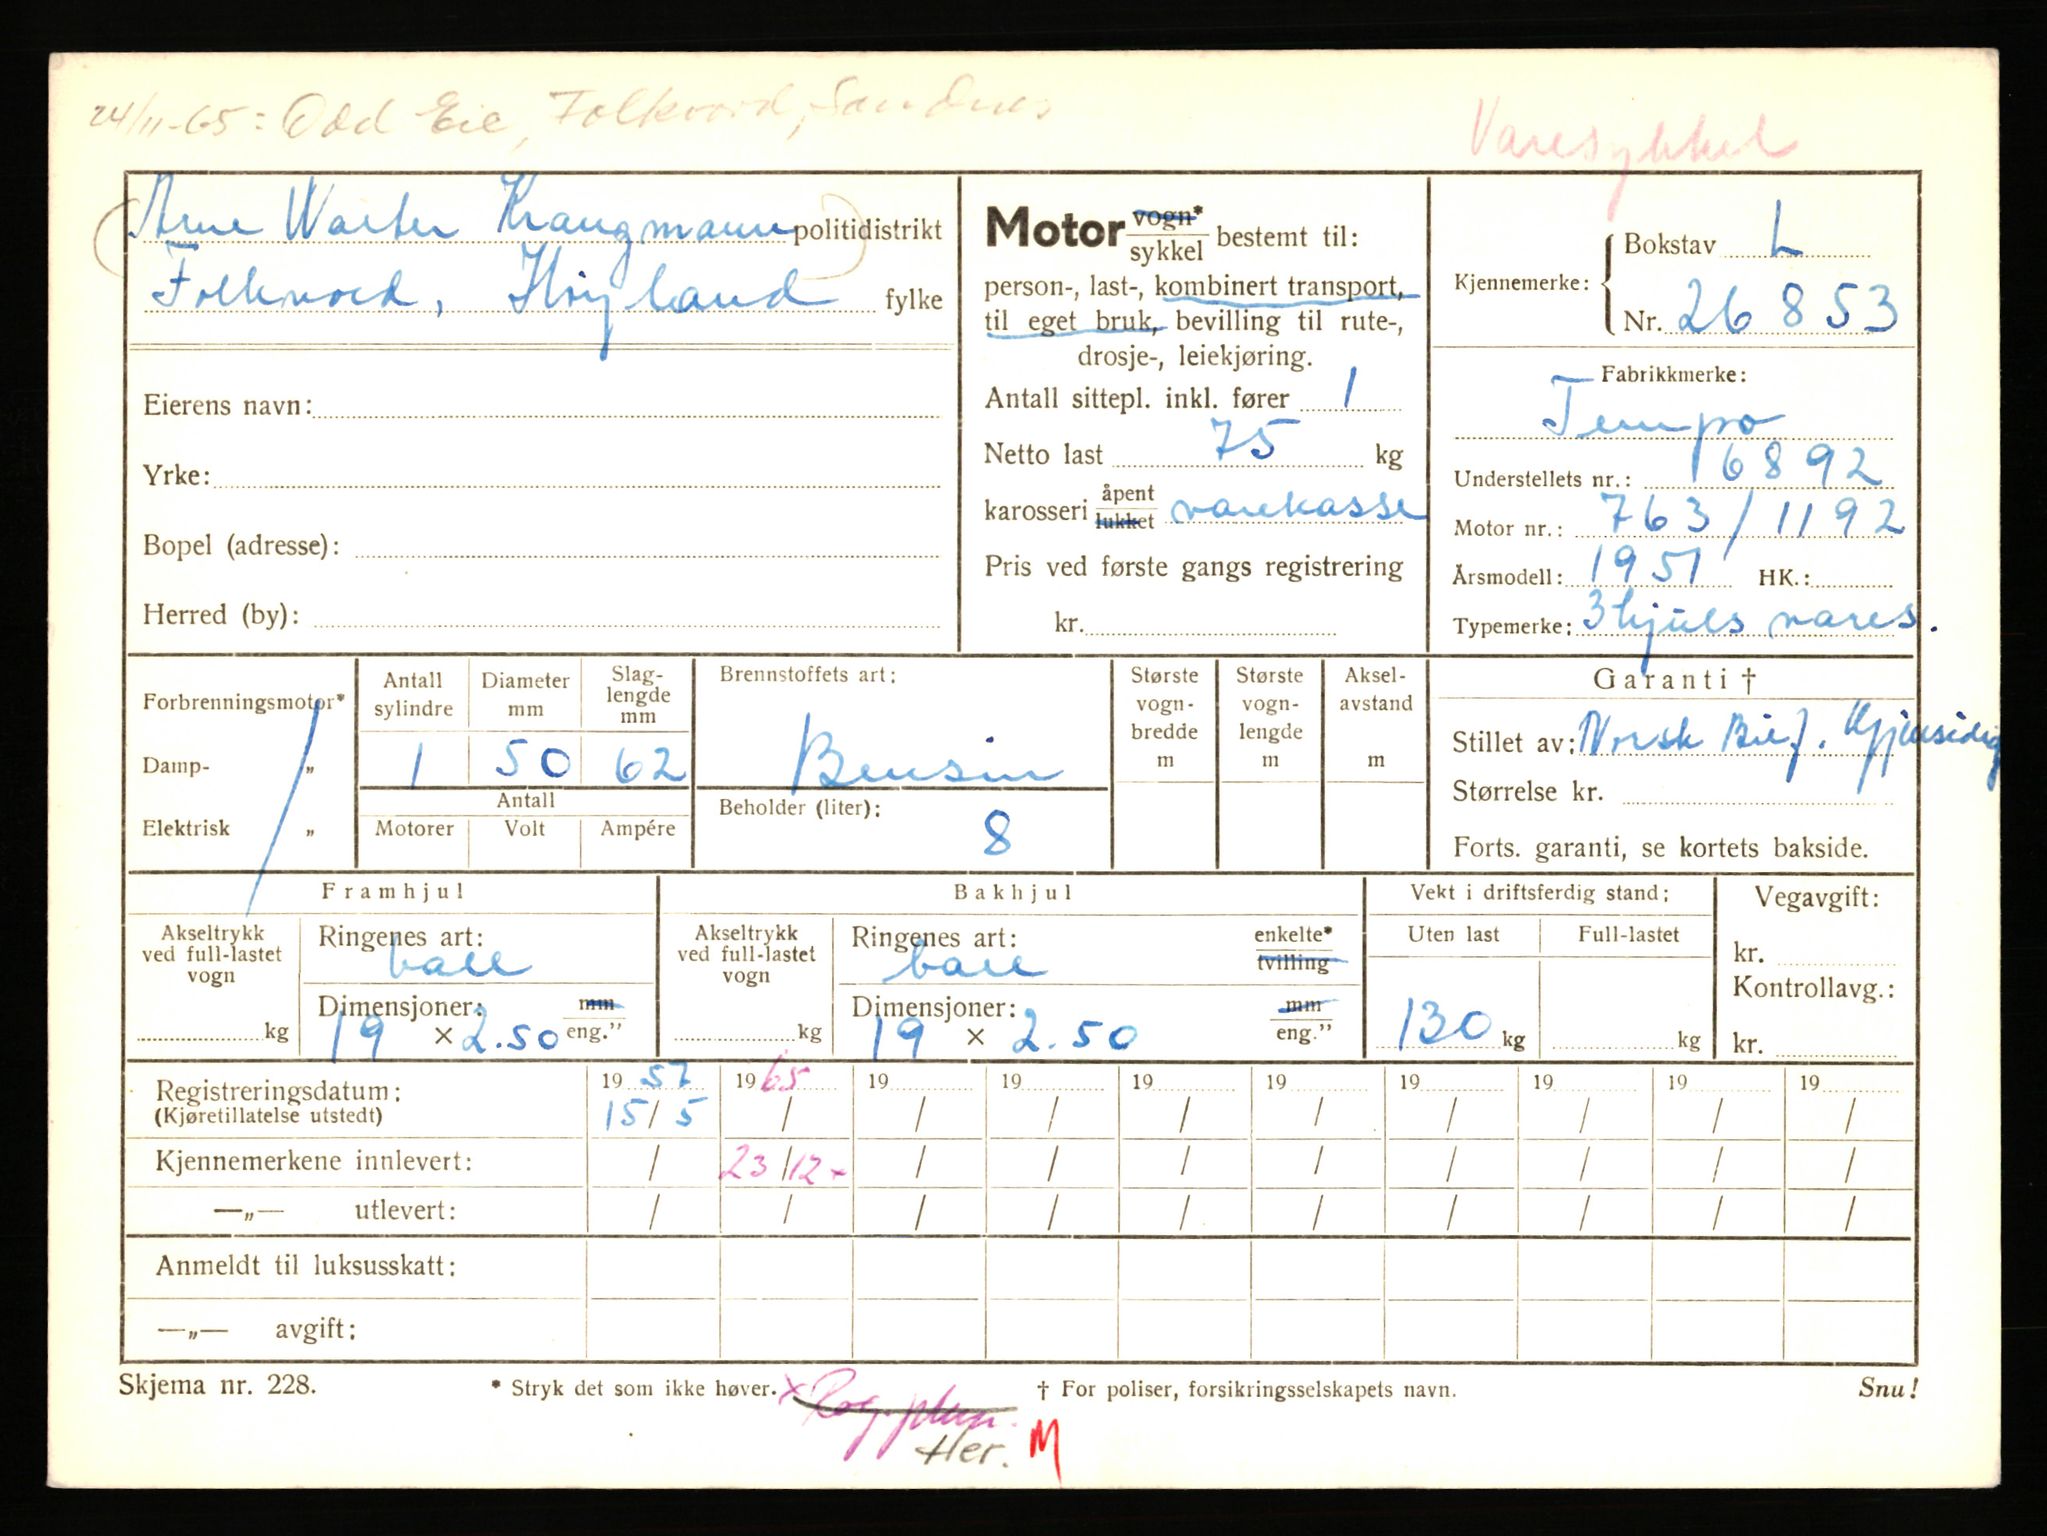 24/11-65: Odd Eie, Folkvord, Sandnes
Varesykkel
Arne Walter Krangmann politidistrikt
Folkvord, Høyland fylke
Eierens navn:
Yrke:
Bopel (adresse):
Herred (by):
Motor vogn* sykkel bestemt til:
person-, last-, kombinert transport,
til eget bruk, bevilling til rute-,
drosje-, leiekjøring.
Antall sittepl. inkl. fører 1
Netto last 75 kg
karosseri åpent lukket varekasse
Pris ved første gangs registrering
kr.
Kjennemerke: Bokstav L
Nr. 26853
Fabrikkmerke:
Tempo
Understellets nr.: 16892
Motor nr.: 763/1192
Årsmodell: 1951 HK.:
Typemerke: 3 hjuls vares.
Forbrenningsmotor*
Damp- „
Elektrisk „
Antall sylindre Diameter mm Slag-lengde mm
1 50 62
Antall
Motorer Volt Ampére
Brennstoffets art:
Bensin
Beholder (liter):
8
Største vogn-bredde m
Største vogn-lengde m
Aksel-avstand m
Garanti †
Stillet av: Norsk Bilf. Gjensidig
Størrelse kr.
Forts. garanti, se kortets bakside.
Framhjul
Akseltrykk ved full-lastet vogn
kg
Ringenes art:
ball
Dimensjoner: mm
19 × 2.50 eng.”
Bakhjul
Akseltrykk ved full-lastet vogn
kg
Ringenes art: enkelte*
ball tvilling
Dimensjoner: mm
19 × 2.50 eng.”
Vekt i driftsferdig stand:
Uten last Full-lastet
130 kg kg
Vegavgift:
kr.
Kontrollavg.:
kr.
Registreringsdatum: 1957 1965 19 19 19 19 19 19 19 19
(Kjøretillatelse utstedt) 15/5 / / / / / / / / /
Kjennemerkene innlevert: / 23/12 × / / / / / / / /
—„— utlevert: / / / / / / / / / /
Anmeldt til luksusskatt:
—„— avgift:
Skjema nr. 228. * Stryk det som ikke høver. × † For poliser, forsikringsselskapets navn. Snu!
Her. M